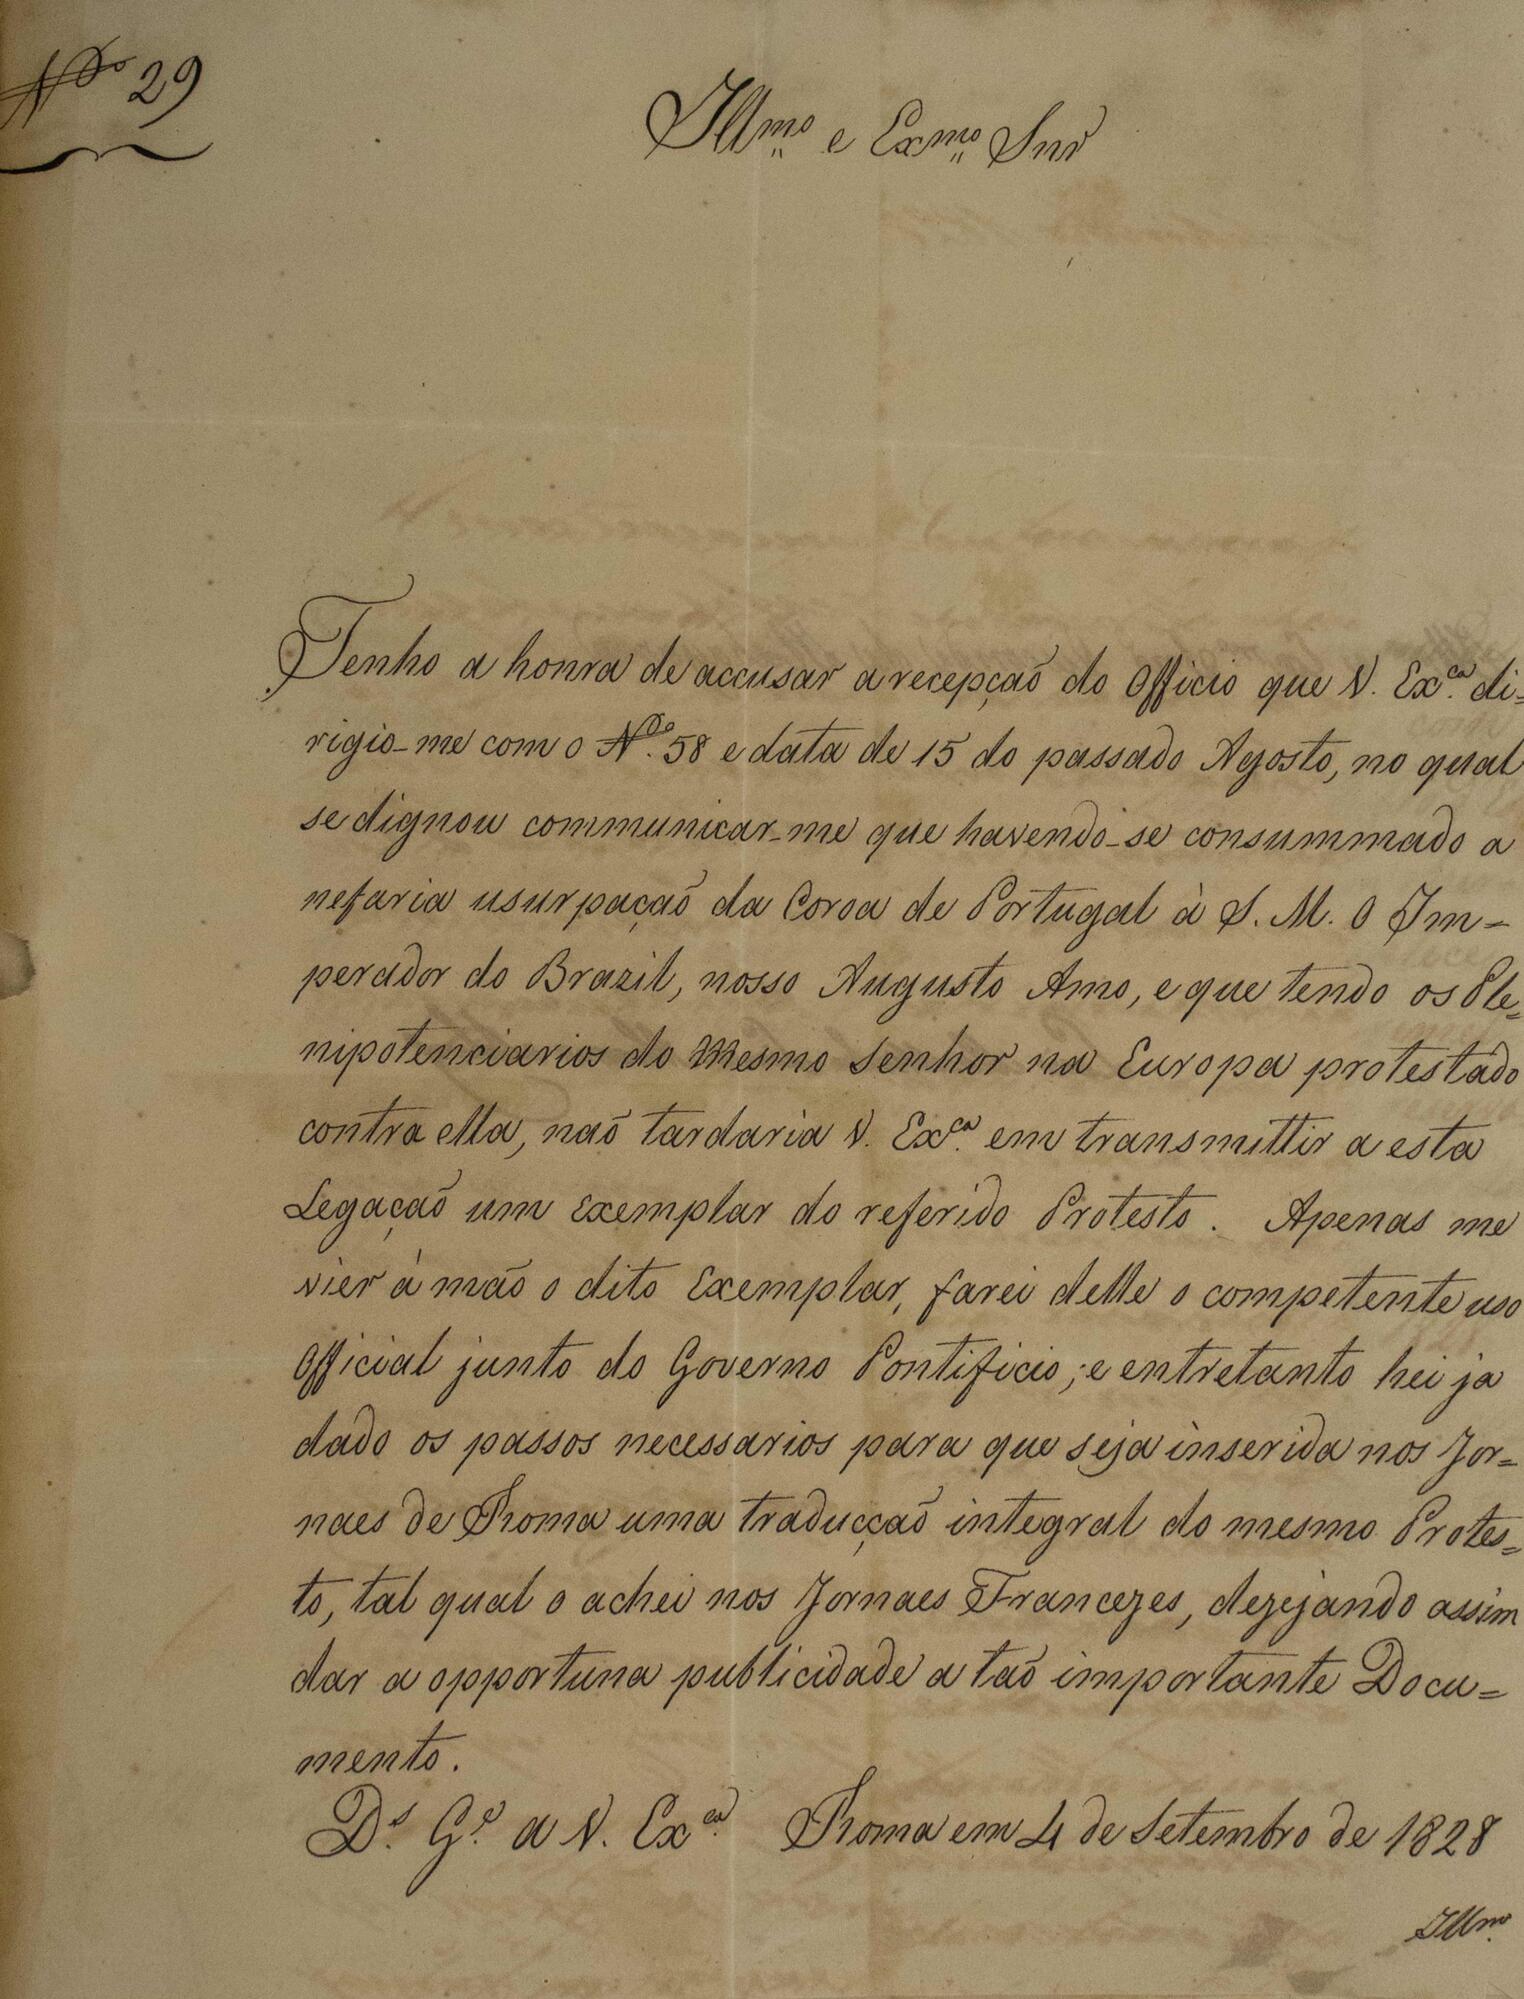 Nº 29
Illmo e Exmo Snr
Tenho a honra de accusar a recepçaõ do Officio que V. Exca di=
rigio-me com o Nº 58 e data de 15 do passado Agosto, no qual
se dignou communicar-me que havendo-se consummado a
nefaria usurpaçaõ da Coroa de Portugal à S. M. O Im=
perador do Brazil, nosso Augusto Amo, e que tendo os Ple=
nipotenciarios do Mesmo Senhor na Europa protestado
contra ella, naõ tardaria V. Exca em transmittir a esta
Legaçaõ um exemplar do referido Protesto. Apenas me
vier à mão o dito Exemplar, farei delle o competente uso
Official junto do Governo Pontificio; e entretanto hei ja
dado os passos necessarios para que seja inserida nos Jor=
naes de Roma uma traducçaõ integral do mesmo Protes=
to, tal qual o achei nos Jornaes Francezes, dezejando assim
dar a opportuna publicidade a taõ importante Docu=
mento.
Ds Ge a V. Exca Roma em 4 de Setembro de 1828
Illmo